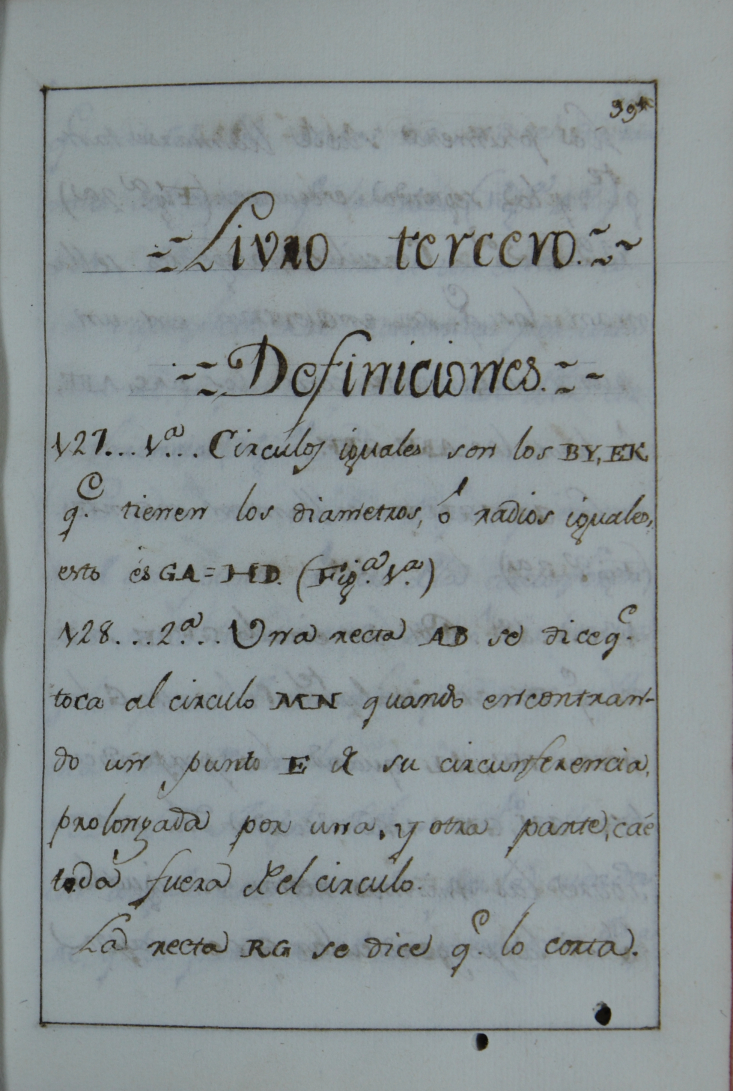 39
~Livro tercero.~
~Definiciones.~
127... 1ª... Circulos iguales son los BY, EK
q.ᵉ tienen los diametros, ó radios iguales,
esto és GA=HD. (Fig.ª 1.ª)
128... 2.ª.. Una recta AB se dice q.ᵉ
toca al circulo MN quando encontran-
do un punto E de su circunferencia,
prolongada por una, y otra parte, cáe
toda fuera de el circulo.
La recta RG se dice q.ᵉ lo corta.